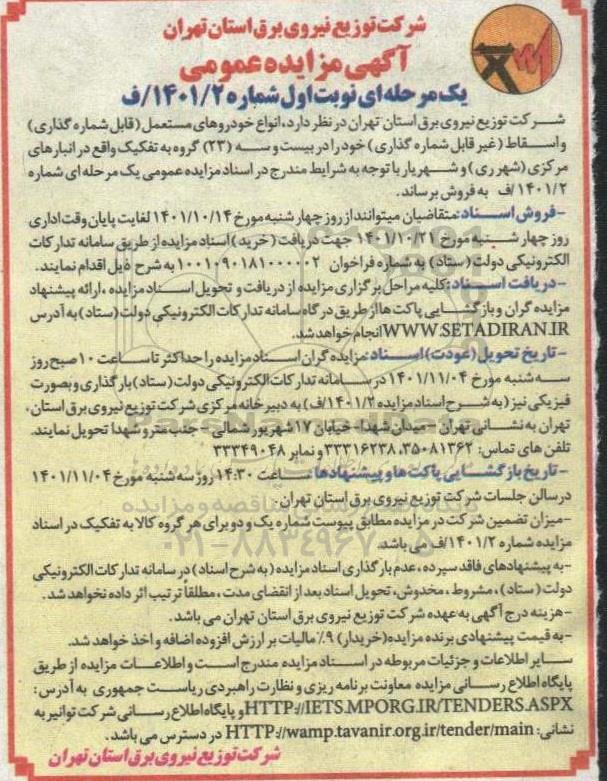 شرکت توزیع نیروی برق استان تهران
آگهی مزایده عمومی
یک مرحله ای نوبت اول شماره ۱۴۰۱/۲/ف
شرکت توزیع نیروی برق استان تهران در نظر دارد، انواع خودروهای مستعمل (قابل شماره گذاری)
و اسقاط (غیر قابل شماره گذاری) خود را در بیست و سه (۲۳) گروه به تفکیک واقع در انبارهای
مرکزی (شهر ری) و شهریار با توجه به شرایط مندرج در اسناد مزایده عمومی یک مرحله ای شماره
۱۴۰۱/۲/ف به فروش برساند.
-فروش اسناد: متقاضیان میتوانند از روز چهار شنبه مورخ ۱۴۰۱/۱۰/۱۴ لغایت پایان وقت اداری
روز چهار شنبه مورخ ۱۴۰۱/۱۰/۲۱ جهت دریافت (خرید) اسناد مزایده از طریق سامانه تدارکات
الکترونیکی دولت (ستاد) به شماره فراخوان ۱۰۰۱۰۹۰۱۸۱۰۰۰۰۰۲ به شرح ذیل اقدام نمایند.
-دریافت اسناد: کلیه مراحل برگزاری مزایده از دریافت و تحویل اسناد مزایده، ارائه پیشنهاد
مزایده گران و بازگشایی پاکت ها از طریق درگاه سامانه تدارکات الکترونیکی دولت (ستاد) به آدرس
WWW.SETADIRAN.IR انجام خواهد شد.
-تاریخ تحویل (عودت) اسناد: مزایده گران اسناد مزایده را حداکثر تا ساعت ۱۰ صبح روز
سه شنبه مورخ ۱۴۰۱/۱۱/۰۴ در سامانه تدارکات الکترونیکی دولت (ستاد) بارگذاری و بصورت
فیزیکی نیز (به شرح اسناد مزایده ۱۴۰۱/۲/ف) به دبیرخانه مرکزی شرکت توزیع نیروی برق استان،
تهران به نشانی تهران - میدان شهدا- خیابان ۱۷ شهریور شمالی- جنب مترو شهدا تحویل نمایند.
تلفن های تماس: ۳۵۰۸۱۳۶۲، ۳۳۳۱۶۲۳۸ و نمابر ۳۳۳۴۹۰۴۸
-تاریخ بازگشایی پاکت ها و پیشنهادها: ساعت ۱۴:۳۰ روز سه شنبه مورخ ۱۴۰۱/۱۱/۰۴
در سالن جلسات شرکت توزیع نیروی برق استان تهران.
-میزان تضمین شرکت در مزایده مطابق پیوست شماره یک و دو برای هر گروه کالا به تفکیک در اسناد
مزایده شماره ۱۴۰۱/۲/ف می باشد.
-به پیشنهادهای فاقد سپرده، عدم بارگذاری اسناد مزایده (به شرح اسناد) در سامانه تدارکات الکترونیکی
دولت (ستاد)، مشروط، مخدوش، تحویل اسناد بعد از انقضای مدت، مطلقاً ترتیب اثر داده نخواهد شد.
-هزینه درج آگهی به عهده شرکت توزیع نیروی برق استان تهران می باشد.
-به قیمت پیشنهادی برنده مزایده (خریدار) ۹٪ مالیات بر ارزش افزوده اضافه و اخذ خواهد شد.
سایر اطلاعات و جزئیات مربوطه در اسناد مزایده مندرج است و اطلاعات مزایده از طریق
پایگاه اطلاع رسانی مزایده معاونت برنامه ریزی و نظارت راهبردی ریاست جمهوری به آدرس:
HTTP://IETS.MPORG.IR/TENDERS.ASPX و پایگاه اطلاع رسانی شرکت توانیر به
نشانی: HTTP://wamp.tavanir.org.ir/tender/main در دسترس می باشد.
شرکت توزیع نیروی برق استان تهران